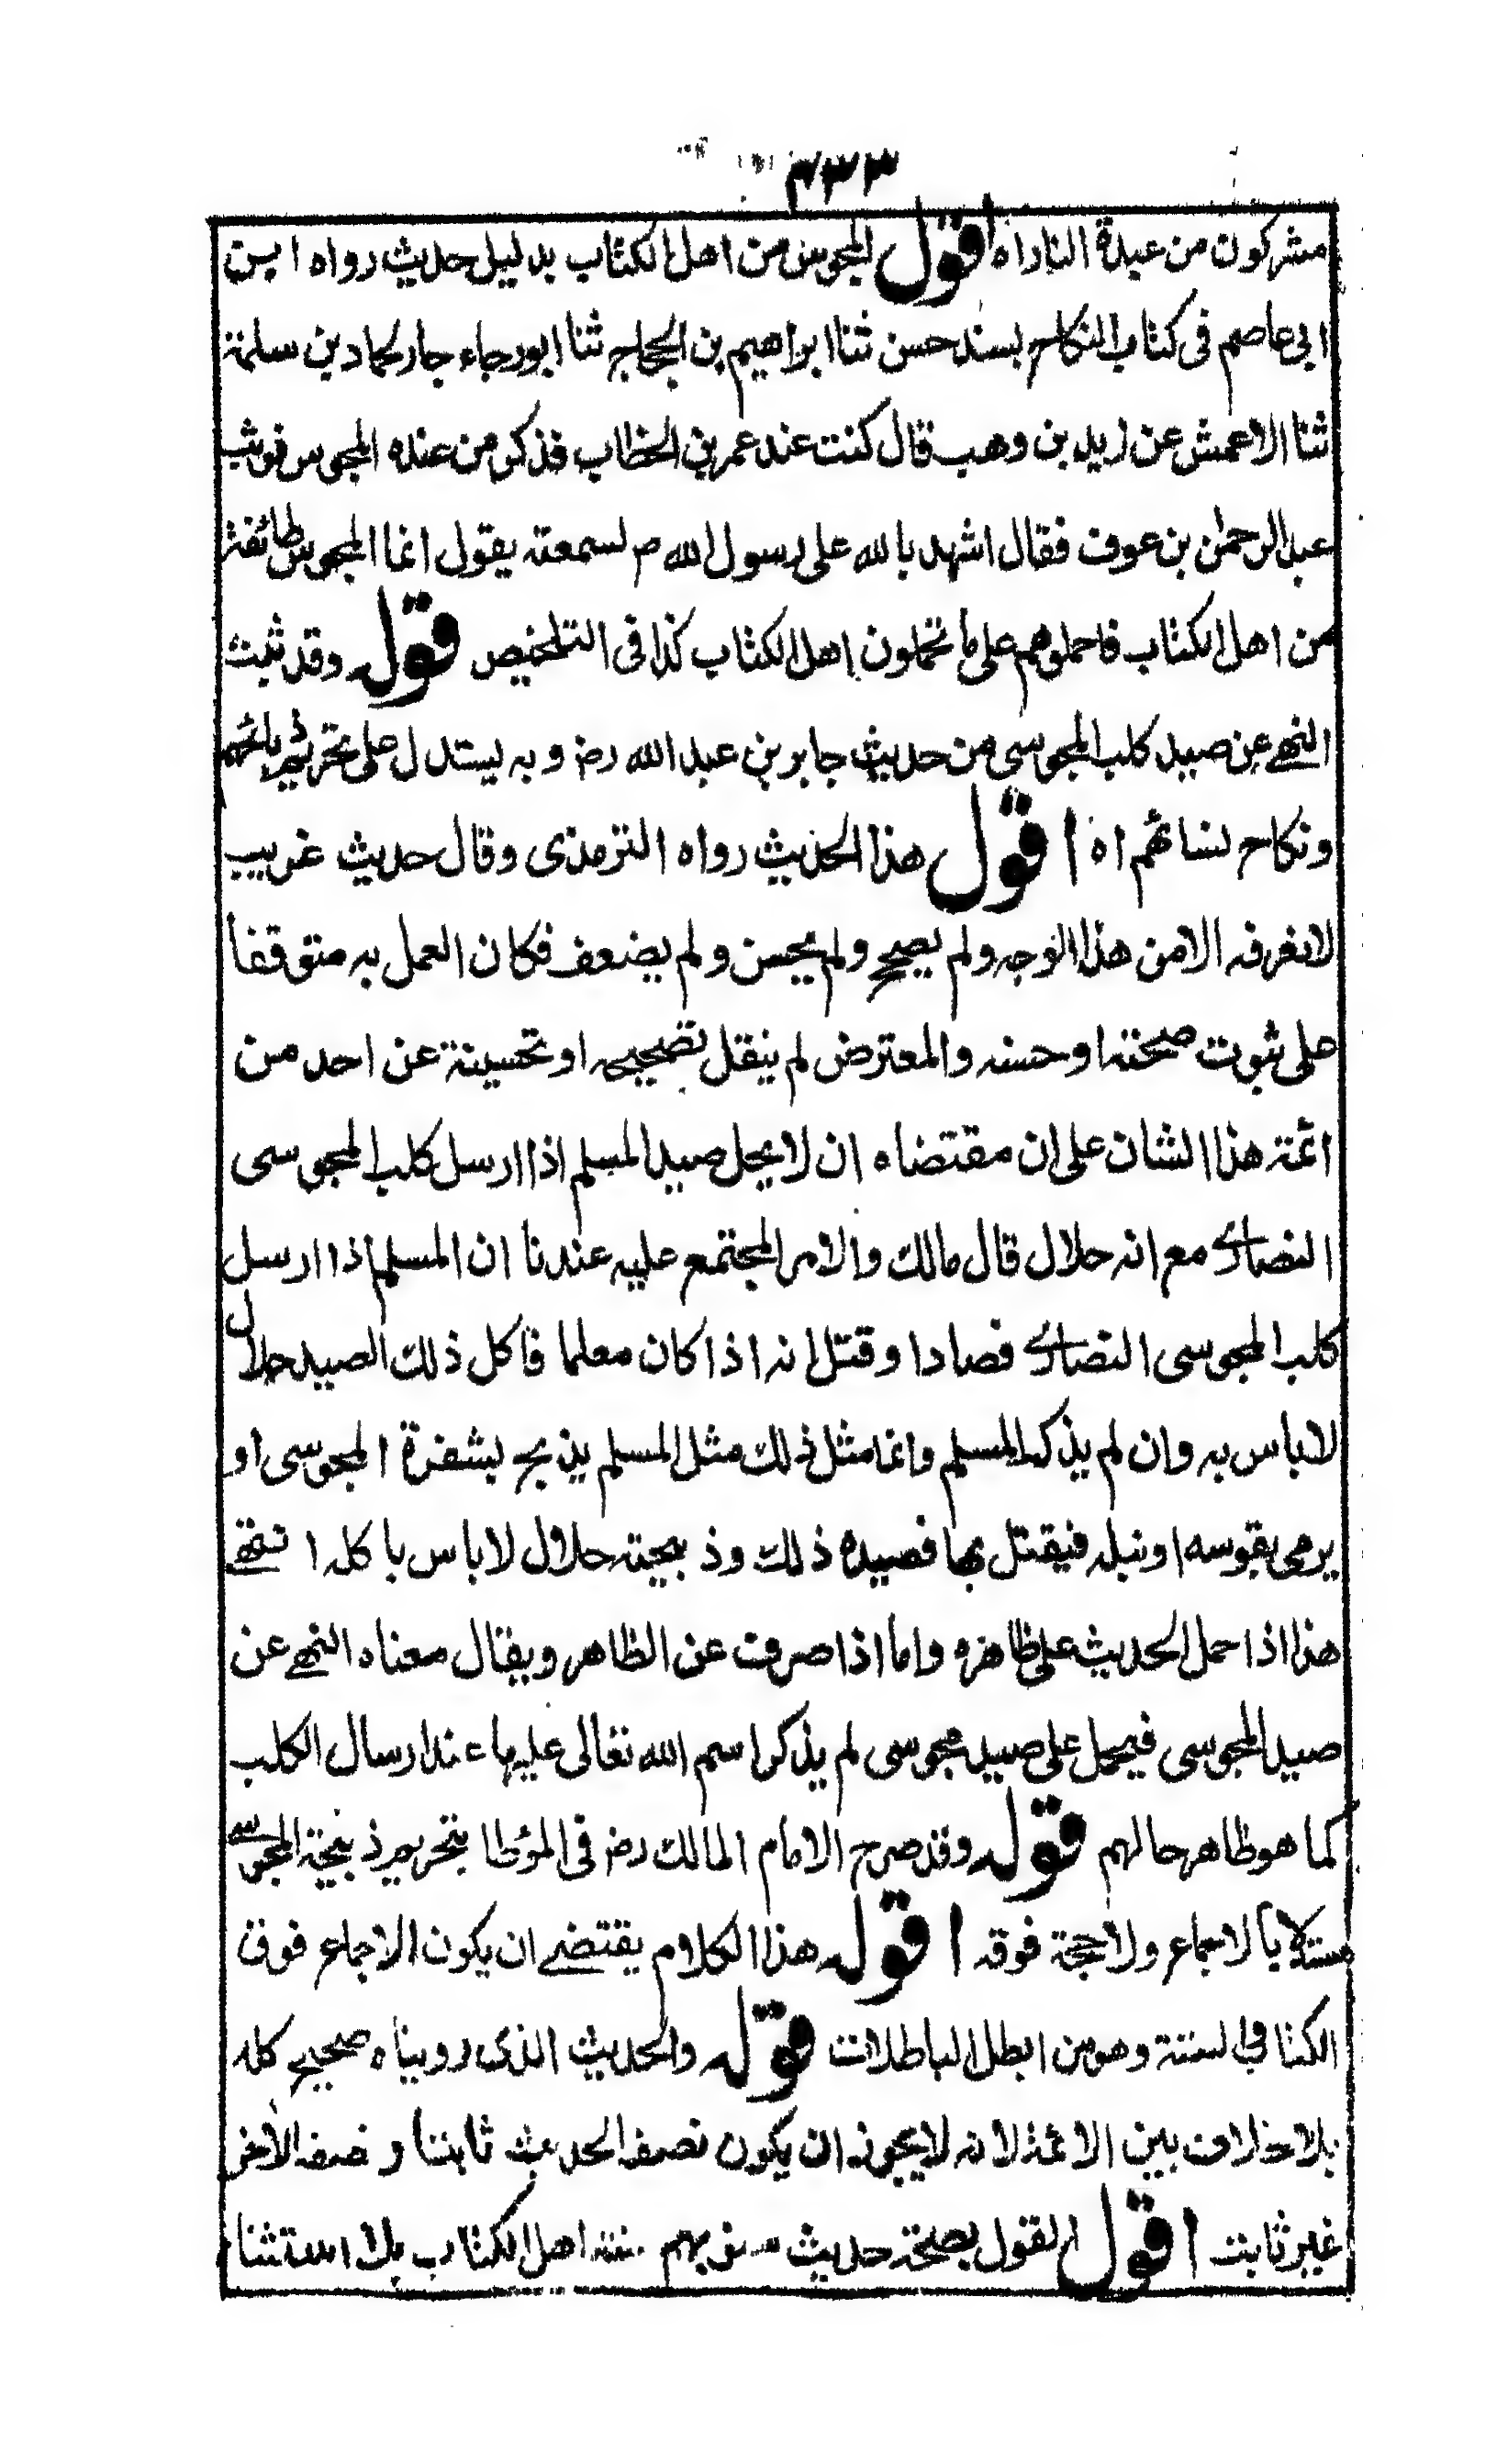 ۴۳۳
مشركون من عبدة النار اه اقول المجوس من اهل الكتاب بدليل حديث رواه ابن
ابي عاصم فى كتاب النكاح بسند حسن ثنا ابراهيم بن الحجاج ثنا ابورجاء جار لحماد بن سلمة
ثنا الاعمش عن زيد بن وهب قال كنت عند عمر بن الخطاب فذكر من عنده المجوس فوثب
عبد الرحمن بن عوف فقال اشهد بالله على رسول الله م لسمعته يقول انما المجوس طائفة
من اهل الكتاب فاحملوهم على ما تحملون اهل الكتاب كذا فى التلخيص قوله وقد ثبت
النهى عن صيد كلب المجوسى من حديث جابر بن عبد الله رض وبه يستدل على تحريم ذبائحهم
ونكاح نسائهم اه اقول هذا الحديث رواه الترمذى وقال حديث غريب
لا نعرفه الا من هذا الوجه ولم يصحح ولم يحسن ولم يضعف فكان العمل به متوقفا
على ثبوت صحته او حسنه والمعترض لم ينقل تصحيحه او تحسينة عن احد من
ائمة هذا الشان على ان مقتضاه ان لا يحل صيد المسلم اذا ارسل كلب المجوسى
الضارى مع انه حلال قال مالك والامر المجتمع عليه عندنا ان المسلم اذا ارسل
كلب المجوسى الضارى فصاد او قتل انه اذا كان معلما فاكل ذلك الصيد حلال
لا باس به وان لم يذكه المسلم وانما مثل ذلك مثل المسلم يذبح بشفرة المجوسى او
يرمى بقوسه او نبله فيقتل بها فصيده ذلك وذبيحته حلال لا باس باكله انتهى
هذا اذا حمل الحديث على ظاهره واما اذا صرف عن الظاهر ويقال معناه النهى عن
صيد المجوسى فيحمل على صيد مجوسى لم يذكر اسم الله تعالى عليها عند ارسال الكلب
كما هو ظاهر حالهم قوله وقد صرح الامام المالك رض فى المؤطا بتحريم ذبيحة المجوسى
مستدلا بالاجماع ولا حجة فوقه اقول هذا الكلام يقتضى ان يكون الاجماع فوق
الكتاب والسنة وهو من ابطل الباطلات قوله والحديث الذى رويناه صحيح كله
بلا خلاف بين الائمة لانه لا يجوز ان يكون نصف الحديث ثابتا و نصفه الأخر
غير ثابت اقول القول بصحة حديث سنوا بهم سنة اهل الكتاب بلا استثنا